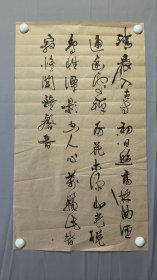 清晨入古寺初日照高林曲徑
通幽處禪房花木深山光悅
鳥性潭影空人心萬籟此皆
寂惟聞鐘磬音